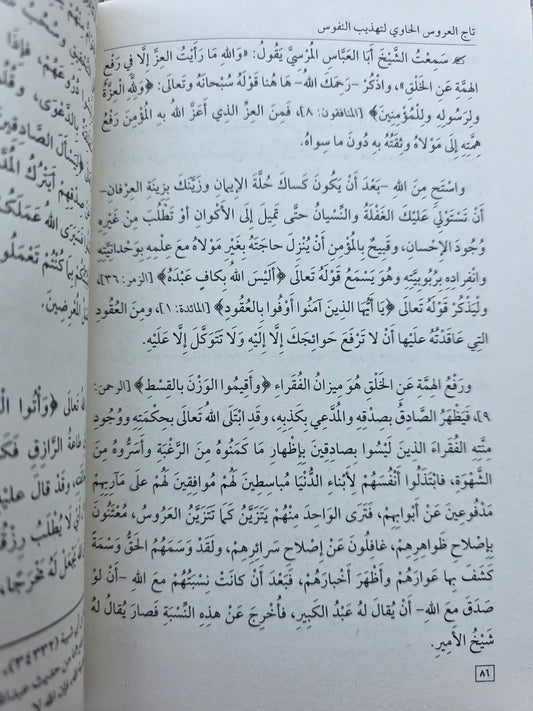 تاج العروس الحاوي لتهذيب النفوس
سَمِعْتُ الشَّيْخَ أَبَا العَبَّاسِ المُرْسِيَّ يَقُولُ: «وَاللهِ مَا رَأَيْتُ العِزَّ إِلَّا فِي رَفْعِ
الهِمَّةِ عَنِ الخَلْقِ»، وَاذْكُرْ -رَحِمَكَ اللهُ- هَا هُنَا قَوْلَهُ سُبْحَانَهُ وَتَعَالَى: ﴿وَلِلَّهِ العِزَّةُ
وَلِرَسُولِهِ وَلِلْمُؤْمِنِينَ﴾ [المنافقون: ٨]، فَمِنَ العِزِّ الذِي أَعَزَّ اللهُ بِهِ المُؤْمِنَ رَفْعُ
هِمَّتِهِ إِلَى مَوْلَاهُ وَثِقَتُهُ بِهِ دُونَ مَا سِوَاهُ.
وَاسْتَحِ مِنَ اللهِ -بَعْدَ أَنْ يَكُونَ كَسَاكَ حُلَّةَ الإِيمَانِ وَزَيَّنَكَ بِزِينَةِ العِرْفَانِ-
أَنْ تَسْتَوْلِيَ عَلَيْكَ الغَفْلَةُ وَالنِّسْيَانُ حَتَّى تَمِيلَ إِلَى الأَكْوَانِ أَوْ تَطْلُبَ مِنْ غَيْرِهِ
وُجُودَ الإِحْسَانِ، وَقَبِيحٌ بِالمُؤْمِنِ أَنْ يُنْزِلَ حَاجَتَهُ بِغَيْرِ مَوْلَاهُ مَعَ عِلْمِهِ بِوَحْدَانِيَّتِهِ
وَانْفِرَادِهِ بِرُبُوبِيَّتِهِ وَهُوَ يَسْمَعُ قَوْلَهُ تَعَالَى ﴿أَلَيْسَ اللهُ بِكَافٍ عَبْدَهُ﴾ [الزمر: ٣٦]،
وَلْيَذْكُرْ قَوْلَهُ تَعَالَى ﴿يَا أَيُّهَا الذِينَ آمَنُوا أَوْفُوا بِالعُقُودِ﴾ [المائدة: ١]، وَمِنَ العُقُودِ
التِي عَاقَدْتُهُ عَلَيْهَا أَنْ لَا تَرْفَعَ حَوَائِجَكَ إِلَّا إِلَيْهِ وَلَا تَتَوَكَّلَ إِلَّا عَلَيْهِ.
وَرَفْعُ الهِمَّةِ عَنِ الخَلْقِ هُوَ مِيزَانُ الفُقَرَاءِ ﴿وَأَقِيمُوا الوَزْنَ بِالقِسْطِ﴾ [الرحمن:
٩]، فَيَظْهَرُ الصَّادِقُ بِصِدْقِهِ وَالمُدَّعِي بِكَذِبِهِ، وَقَدِ ابْتَلَى اللهُ تَعَالَى بِحِكْمَتِهِ وَوُجُودِ
مِنَّتِهِ الفُقَرَاءَ الذِينَ لَيْسُوا بِصَادِقِينَ بِإِظْهَارِ مَا كَمَنُوهُ مِنَ الرَّغْبَةِ وَأَسَرُّوهُ مِنَ
الشَّهْوَةِ، فَابْتَذَلُوا أَنْفُسَهُمْ لِأَبْنَاءِ الدُّنْيَا مُبَاسِطِينَ لَهُمْ مُوَافِقِينَ لَهُمْ عَلَى مَآرِبِهِمْ
مَدْفُوعِينَ عَنْ أَبْوَابِهِمْ، فَتَرَى الوَاحِدَ مِنْهُمْ يَتَزَيَّنُ كَمَا تَتَزَيَّنُ العَرُوسُ، مُعْتَنُونَ
بِإِصْلَاحِ ظَوَاهِرِهِمْ، غَافِلُونَ عَنْ إِصْلَاحِ سَرَائِرِهِمْ، وَلَقَدْ وَسَمَهُمُ الحَقُّ وَسْمَةً
كَشَفَ بِهَا عَوَارَهُمْ وَأَظْهَرَ أَخْبَارَهُمْ، فَبَعْدَ أَنْ كَانَتْ نِسْبَتُهُمْ مَعَ اللهِ -أَنْ لَوْ
صَدَقَ مَعَ اللهِ- أَنْ يُقَالَ لَهُ عَبْدُ الكَبِيرِ، فَأُخْرِجَ عَنْ هَذِهِ النِّسْبَةِ فَصَارَ يُقَالُ لَهُ
شَيْخُ الأَمِيرِ.
٨٦